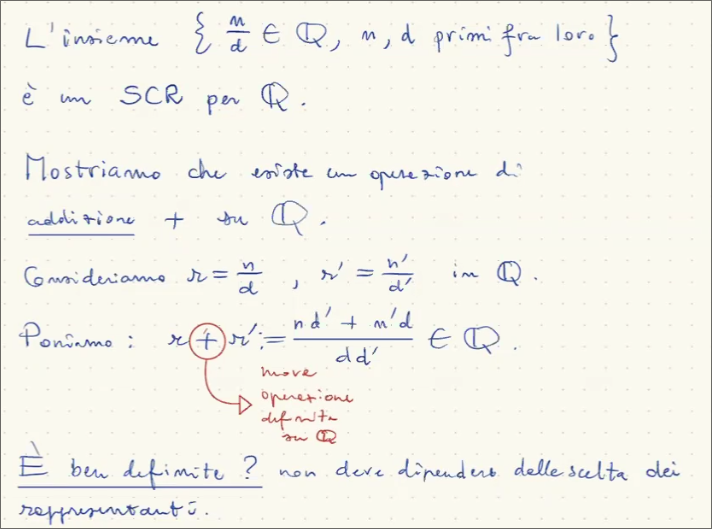 L'insieme { n/d ∈ ℚ, n, d primi fra loro }
è un SCR per ℚ.
Mostriamo che esiste un operazione di
addizione + su ℚ.
Consideriamo r = n/d , r' = n'/d' in ℚ.
Poniamo : r + r' := (nd' + n'd)/(dd') ∈ ℚ.
nuova
operazione
definita
su ℚ
È ben definita ? non deve dipendere dalla scelta dei
rappresentanti.